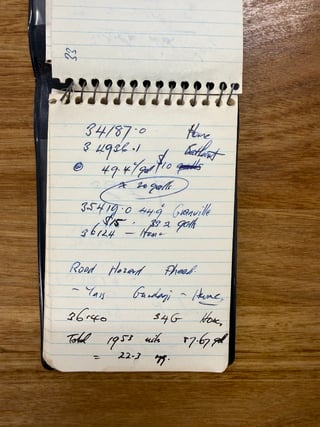 33
34187.0 Home
34936.1
@ 49.4¢/gal $10
≈ 20 galls
35419.0 44.9 Granville
$15. 33.2 galls
36124 - Home
Road Hazard Ahead
- Yass Gundagi - Home,
36140 34G Home,
Total 1953 mls 87.67 gal
= 22.3